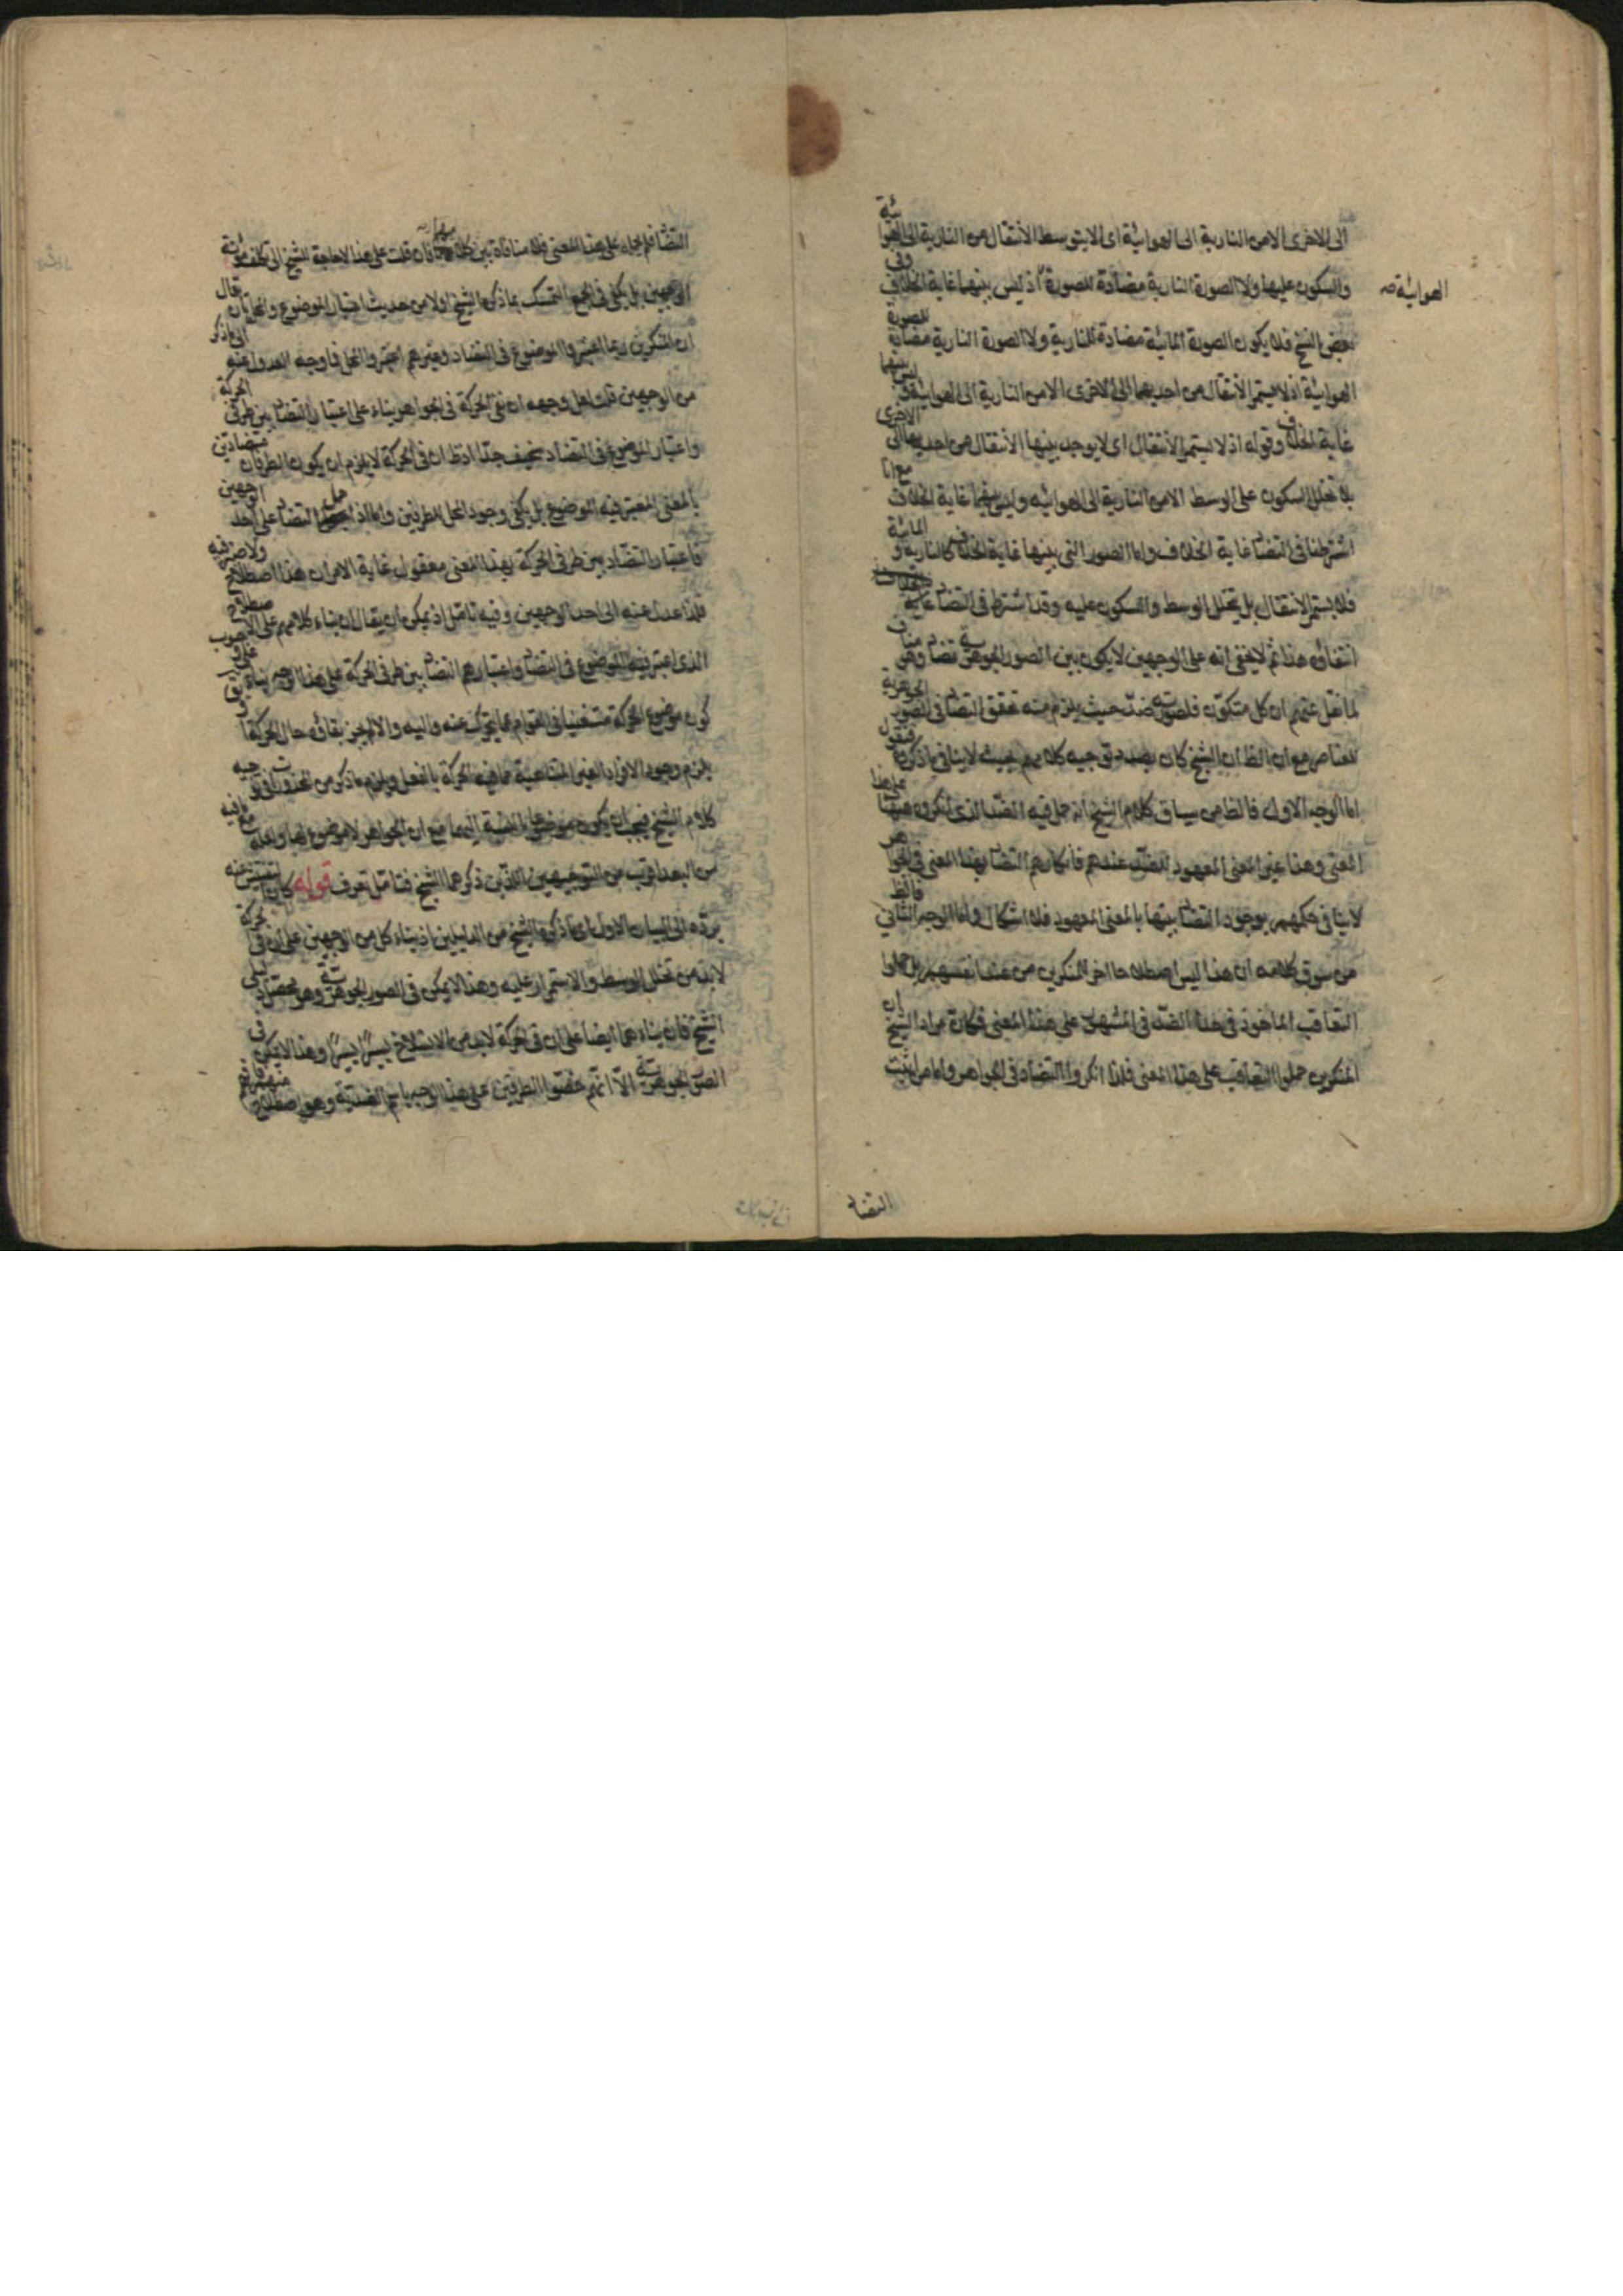 الى الاخرى الا من النارية الى الهوائية اى الا بتوسط الانتقال من النارية الى الهوائية
والسكون عليها ولا الصورة النارية مضادة للصورة الهوائية اذ ليس بينهما غاية الخلاف وفى
بعض النسخ فلا يكون الصورة المائية مضادة للنارية ولا الصورة النارية مضادة للصورة
الهوائية اذ لا يستمر الانتقال من احديهما الى الاخرى الا من النارية الى الهوائية وليس بينهما
غاية الخلاف وقوله اذ لا يستمر الانتقال اى لا يوجد بينها الانتقال من احديهما الى الاخرى
بلا تخلل السكون على الوسط الا من النارية الى الهوائيه وليس بينهما غاية الخلاف مع انا
اشترطنا فى التضاد غاية الخلاف واما الصور التى بينها غاية الخلاف كالنارية و المائية
فلا يستمر الانتقال بل يتخلل الوسط والسكون عليه وقد اشترط فى التضاد
انتفاؤه هذا ثم لا يخفى انه على الوجهين لا يكون بين الصور الجوهرية تضاد وهو مناف
لما نقل عنهم ان كل متكون فلصورته ضد حيث يلزم منه تحقق التضاد فى الصور الجوهرية
للعناصر مع ان الظ ان الشيخ كان بصدد توجيه كلامهم بحيث لا ينافى ما ذكره فنقول
اما الوجه الاول فالظ من سياق كلام الشيخ انه حمل فيه الضد الذى انكروه على هذا
المعنى وهذا غير المعنى المعهود للضد عندهم فانكارهم التضاد بهذا المعنى فى الجواهر
لا ينافى حكمهم بوجود التضاد بينها بالمعنى المعهود فلا اشكال واما الوجه الثانى فالظ
من سوق كلامه ان هذا ليس اصطلاحا اخر للمنكرين من عند انفسهم بل حملوا
التعاقب الماخوذ فى حد الضد فى المشهور على هذا المعنى فكان مراد الشيخ ان
المنكرين حملوا التعاقب على هذا المعنى فلذا انكروا التضاد فى الجواهر واما من اثبت
التضاد
الهوائية صح
التضاد فلم يحمله على هذا المعنى فلا منافاة بين كلاميهما فان قلت على هذا لا حاجة للشيخ الى تكلف مؤنة
الوجهين بل يكفى فى الجمع التمسك بما ذكره الشيخ اولا من حديث اعتبار الموضوع والمحل بان قال
ان المنكرين ربما اعتبروا الموضوع فى التضاد وغيرهم اعتبروا المحل فما وجه العدول عنه الى ما ذكر
من الوجهين قلت لعل وجهه ان نفى الحركة فى الجواهر بناء على اعتبار التضاد بين طرفى الحركة
واعتبار الموضوع فى التضاد سخيف جدا اذ ظ ان فى الحركة لا يلزم ان يكون الطرفان متضادين
بالمعنى المعتبر فيه الموضوع بل يكفى وجود المحل للطرفين واما اذا حمل التضاد على احد الوجهين
فاعتبار التضاد بين طرفى الحركة بهذا المعنى معقول غاية الامر ان هذا اصطلاح ولا ضير فيه
فلذا عدل عنه الى احد الوجهين وفيه تامل اذ يمكن ان يقال ان بناء كلامهم على الاصطلاح
الذى اعتبر فيه الموضوع فى التضاد واعتبارهم التضاد بين طرفى الحركة على هذا الوجه بناء على وجوب
كون موضوع الحركة مستغنيا فى القوام عما يتحرك عنه واليه والا لم يجز بقاؤه حال الحركة
يلزم وجود الافراد الغير المتناهية مما فيه الحركة بالفعل ويلزم ما ذكر من
كلام الشيخ فيجب ان يكون موضوعا بالنسبة اليهما مع ان الجواهر لا موضوع لها ولعله مع ما فيه
من البعد اقرب من التوجيهين اللذين ذكرهما الشيخ فتامل تعرف قوله كان
يرده الى البيان الاول اى ما ذكره الشيخ من الدليلين اذ بناء كل من الوجهين على ان فى الحركة
لا بد من تخلل الوسط والاستمرار عليه وهذا لا يمكن فى الصور الجوهرية وهو محصل دليلى
الشيخ فان بناءهما ايضا على ان فى الحركة لا بد من الانسلاخ يسيرا يسيرا وهذا لا يمكن فى
الصور الجوهرية الا انهم خصوا الطرفين على هذا الوجه باسم الضدية وهو اصطلاح منهم